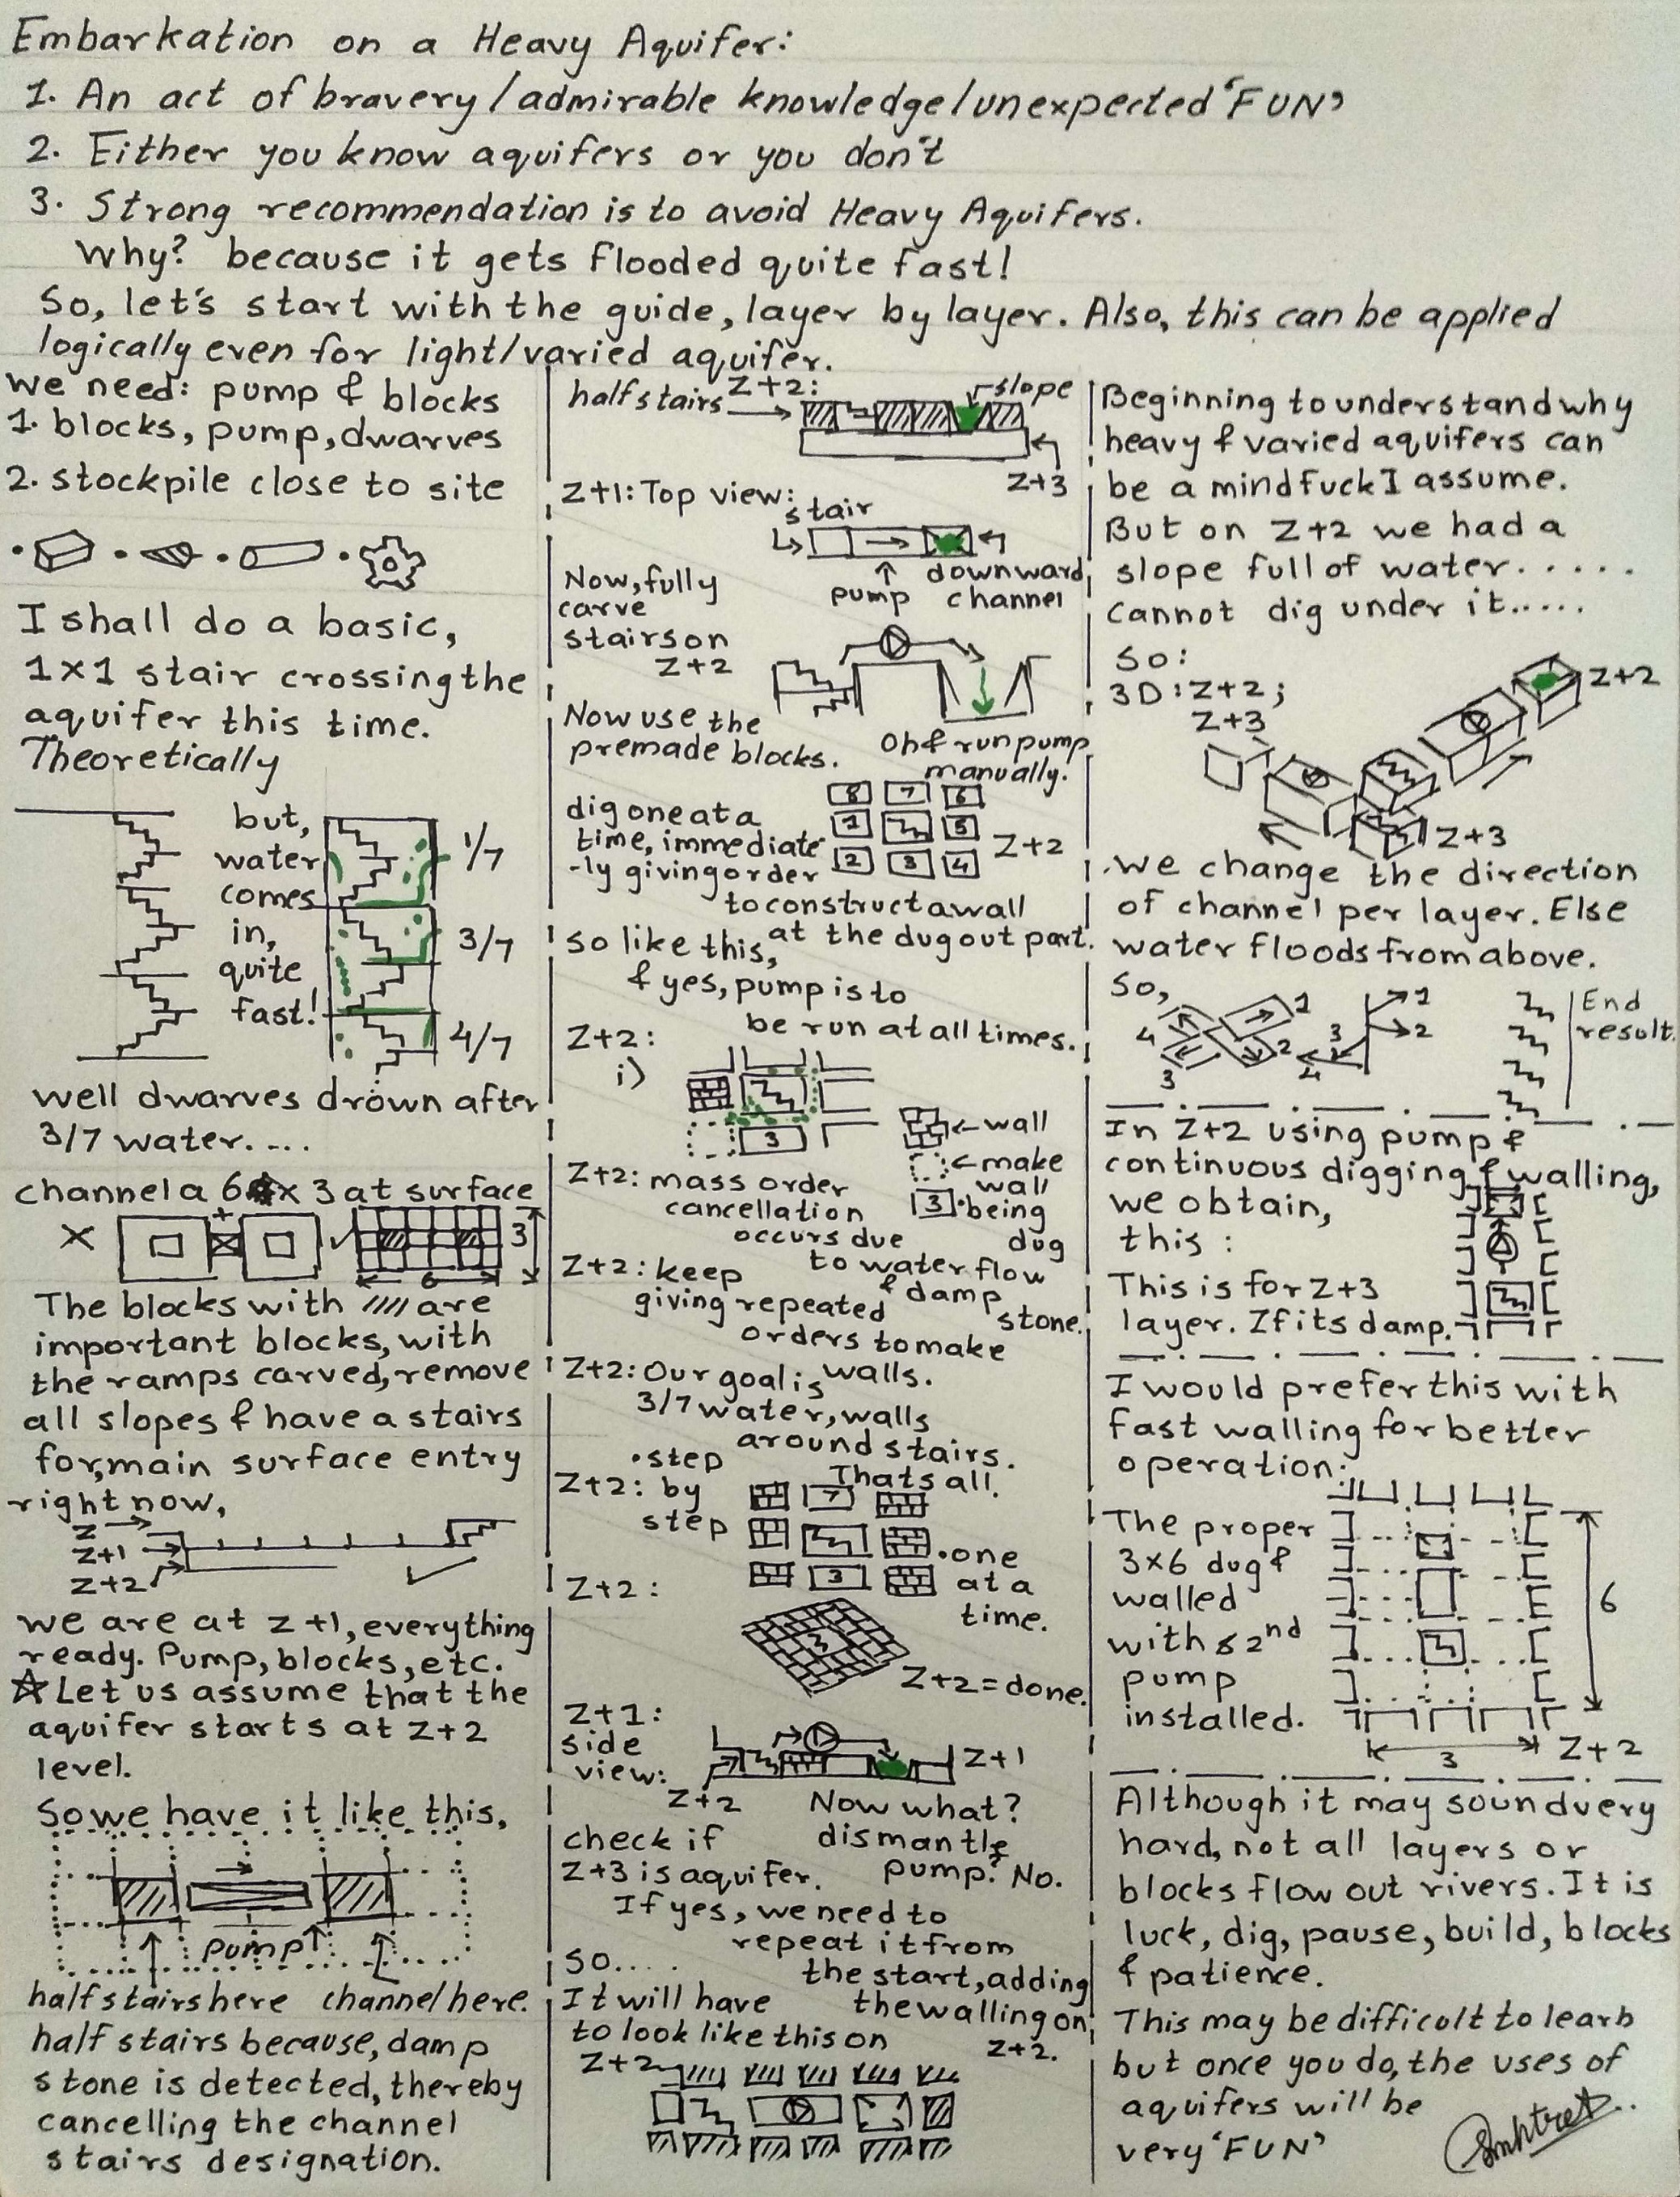 Embarkation on a Heavy Aquifer:
1. An act of bravery/admirable knowledge/unexpected 'FUN'
2. Either you know aquifers or you don't
3. Strong recommendation is to avoid Heavy Aquifers.
Why? because it gets flooded quite fast!
So, let's start with the guide, layer by layer. Also, this can be applied
logically even for light/varied aquifer.
we need: pump & blocks
1. blocks, pump, dwarves
2. stockpile close to site
I shall do a basic,
1x1 stair crossing the
aquifer this time.
Theoretically
but,
water
comes
in,
quite
fast!
1/7
3/7
4/7
well dwarves drown after
3/7 water....
channel a 6 x 3 at surface
3
6
The blocks with //// are
important blocks, with
the ramps carved, remove
all slopes & have a stairs
for, main surface entry
right now,
Z
Z+1
Z+2
we are at z+1, everything
ready. Pump, blocks, etc.
Let us assume that the
aquifer starts at z+2
level.
So we have it like this,
pump
half stairs here channel here.
half stairs because, damp
stone is detected, thereby
cancelling the channel
stairs designation.
half stairs Z+2: slope
Z+3
Z+1: Top view:
stair
pump
downward
channel
Now, fully
carve
stairs on
Z+2
Now use the
premade blocks.
Oh & run pump
manually.
dig one at a
time, immediate
-ly giving order
to construct a wall
at the dug out part.
8 7 6
1 5
2 3 4
Z+2
so like this,
& yes, pump is to
be run at all times.
Z+2:
i)
3
wall
make
wall
3 being
dug
Z+2: mass order
cancellation
occurs due
to water flow
& damp
stone.
Z+2: keep
giving repeated
orders to make
walls.
Z+2: Our goal is
3/7 water, walls
around stairs.
Thats all.
Z+2: • step
by
step
7
3
• one
at a
time.
Z+2:
Z+2 = done.
Z+1:
side
view:
Z+1
Z+2
Now what?
dismantle
pump? No.
check if
Z+3 is aquifer.
If yes, we need to
repeat it from
the start, adding
the walling on
Z+2.
so....
It will have
to look like this on
Z+2
Beginning to understand why
heavy & varied aquifers can
be a mindfuck I assume.
But on Z+2 we had a
slope full of water.....
cannot dig under it.....
So:
3D: Z+2;
Z+3
Z+2
Z+3
we change the direction
of channel per layer. Else
water floods from above.
So,
1
2
3
4
1
2
3
4
End
result.
In Z+2 using pump &
continuous digging & walling,
we obtain,
this:
This is for Z+3
layer. If its damp.
I would prefer this with
fast walling for better
operation:
The proper
3x6 dug &
walled
with 2nd
pump
installed.
6
3
Z+2
Although it may sound very
hard, not all layers or
blocks flow out rivers. It is
luck, dig, pause, build, blocks
& patience.
This may be difficult to learn
but once you do, the uses of
aquifers will be
very 'FUN'